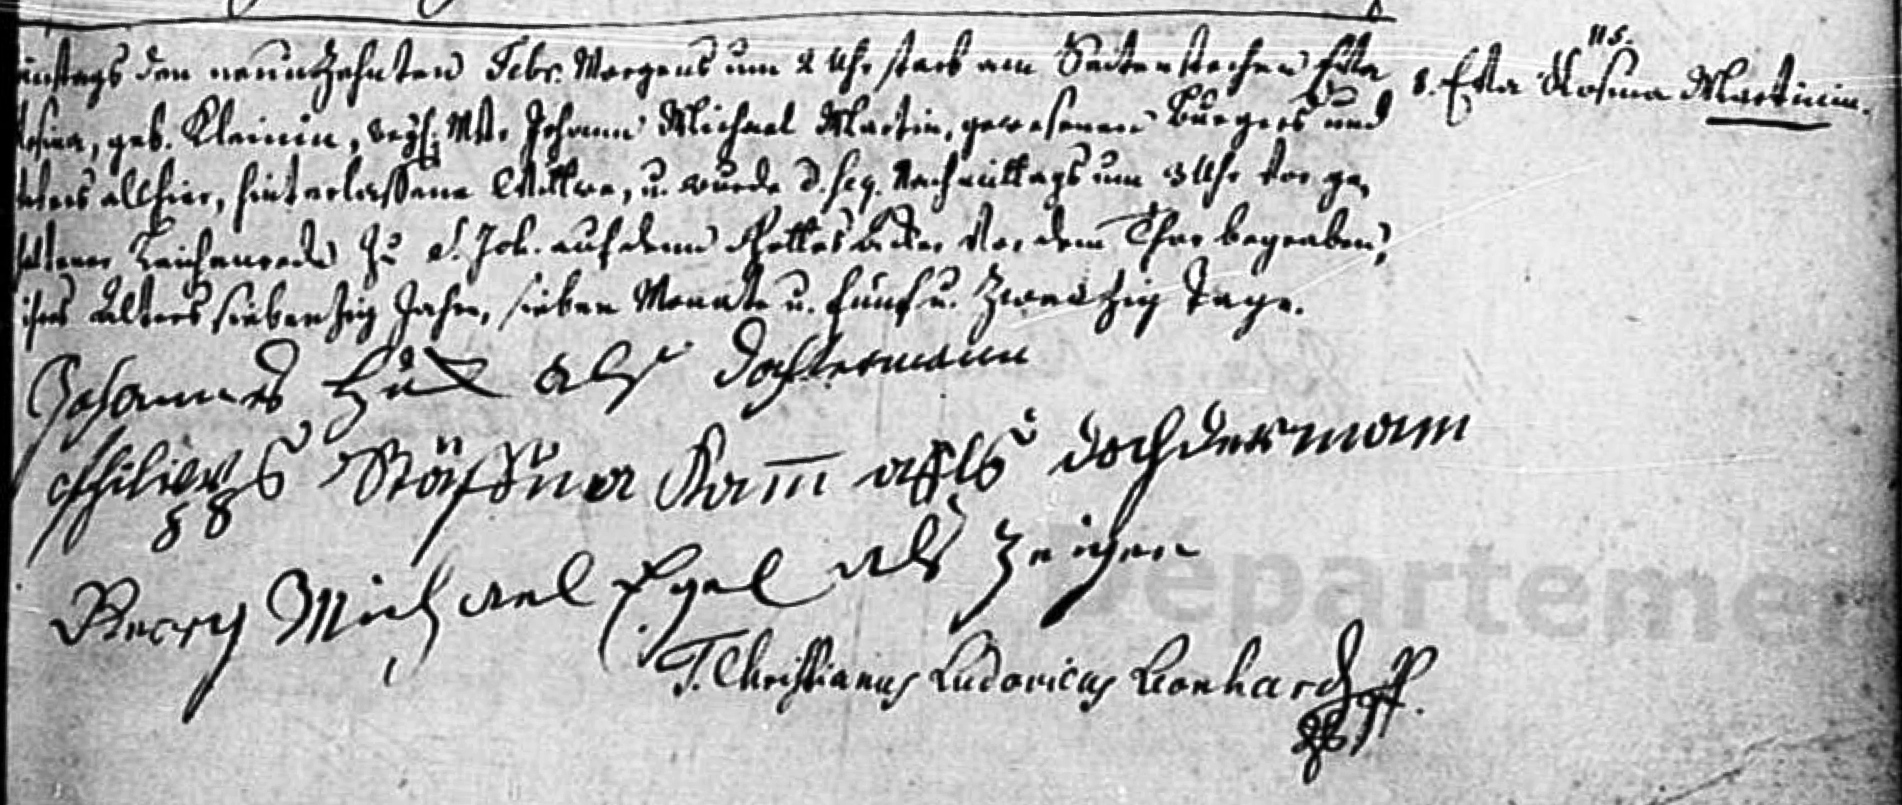 instags den neunzehnten Febr. Morgens um 2 Uhr starb am Seitenstechen Eva
Rosina, geb. Kleinin, weyl. Mstr. Johann Michael Martin, gewesenen Burgers und
allhier, hinterlaßene Wittwe, u. wurde d. seq. Nachmittags um 3 Uhr vor ge,
haltener Leichenrede zu S. Joh. auf dem Gottes Acker vor dem Thor begraben,
ihres Alters siebenzig Jahre, sieben Monate u. fünf u. zwanzig Tage.
115.
8. Eva Rosina Martinin.
Johannes als dochtermann
als dochdermann
Georg Michael Egel als Zeigen
T. Christianus Ludovicus Leonhard
Départeme